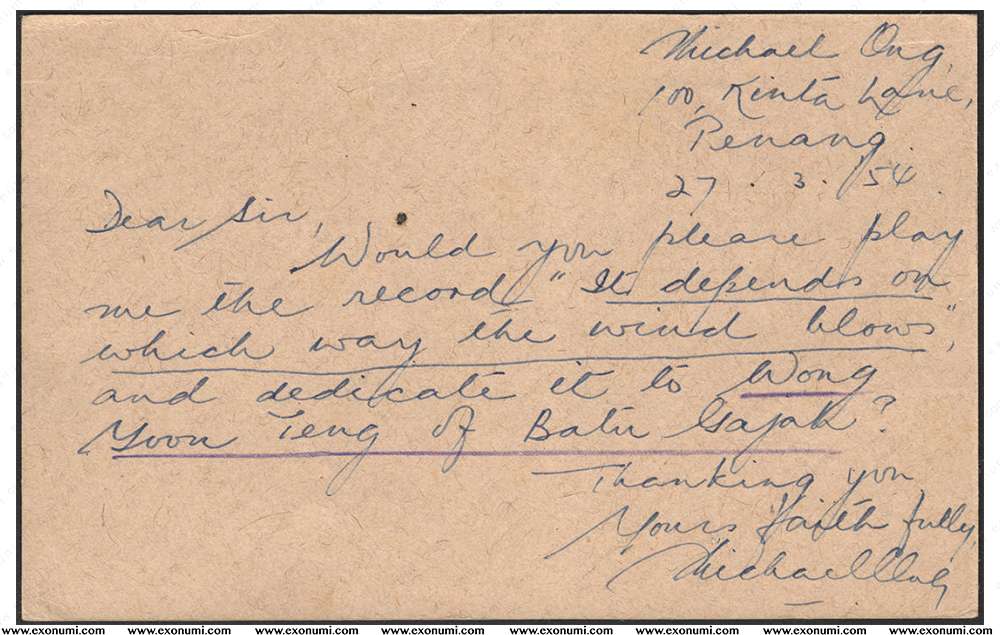 Michael Ong,
100, Kinta Lane,
Penang.
27 . 3 . '54.
Dear Sir,
Would you please play
me the record "It depends on
which way the wind blows",
and dedicate it to Wong
Yoon Teng of Batu Gajah?
Thanking you
Yours faithfully,
Michael Ong
www.exonumi.com www.exonumi.com www.exonumi.com www.exonumi.com www.exonumi.com www.exonumi.com www.exonumi.com www.exonumi.com